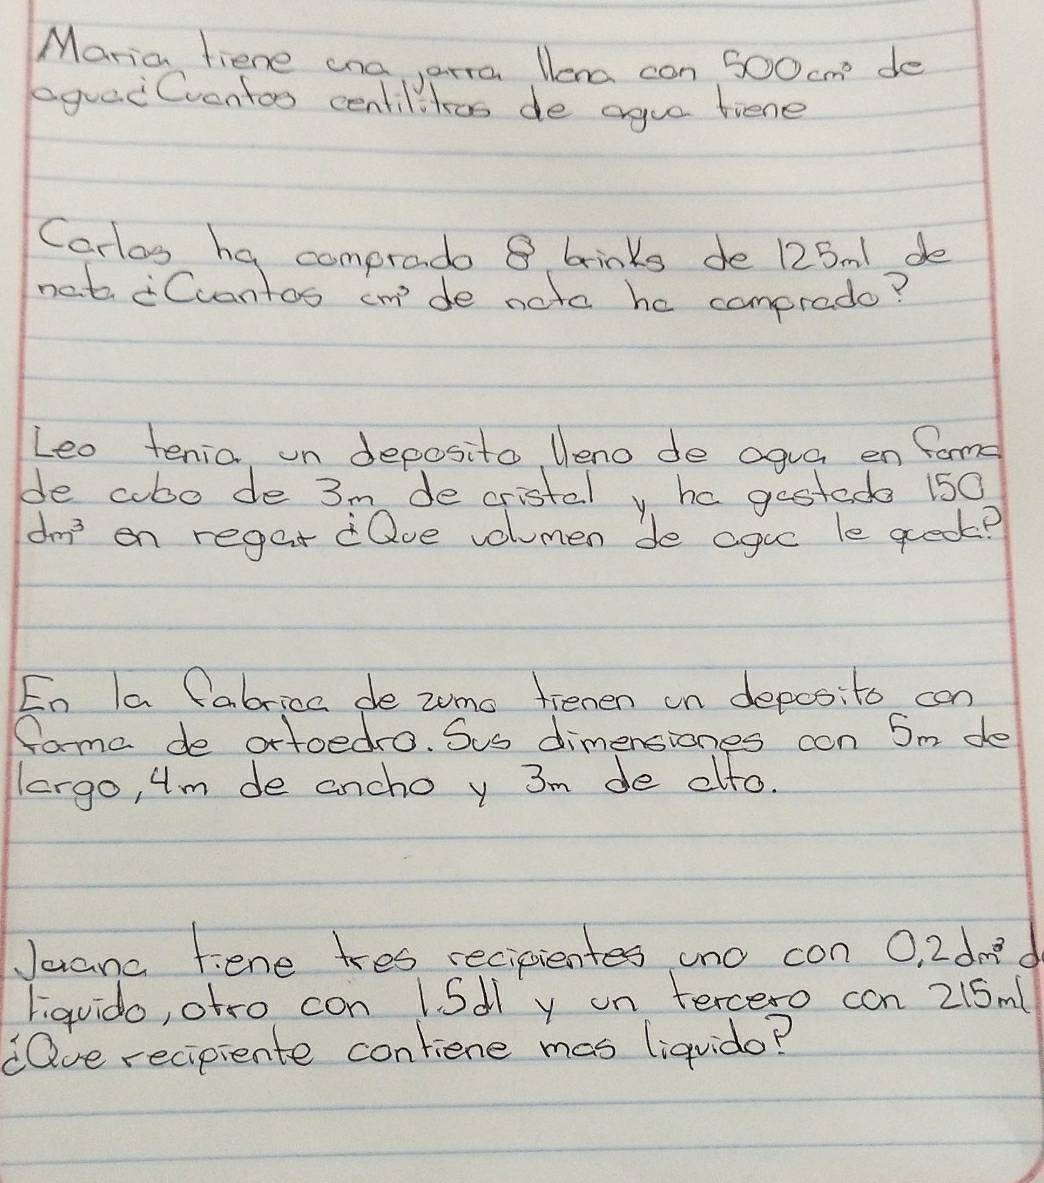 Maria tiene una jarra llena con 500cm³ de
agua¿Cuantos centilitros de agua tiene
Carlos ha comprado 8 briks de 125ml de
nata ¿Cuantos cm³ de nata ha comprado?
Leo tenia un deposito lleno de agua en forma
de cubo de 3m de cristal y ha gastado 150
dm³ en regar ¿Que volumen de agua le queda?
En la fabrica de zumo tienen un deposito con
forma de ortoedro. Sus dimensiones con 5m de
largo, 4m de ancho y 3m de alto.
Juana tiene tres recipientes uno con 0,2dm³ d
liquido, otro con 1.5dl y un tercero con 215ml
¿Que recipiente contiene mas liquido?